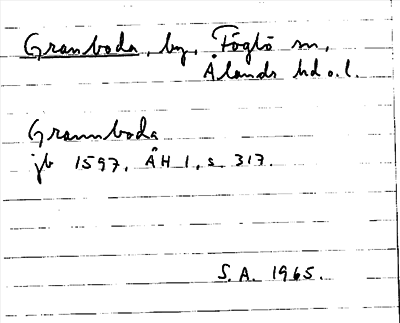 Granboda, by, Föglö sn,
Ålands hd o. l.
Grannboda
jb 1597, ÅH 1, s 317.
S.A. 1965.